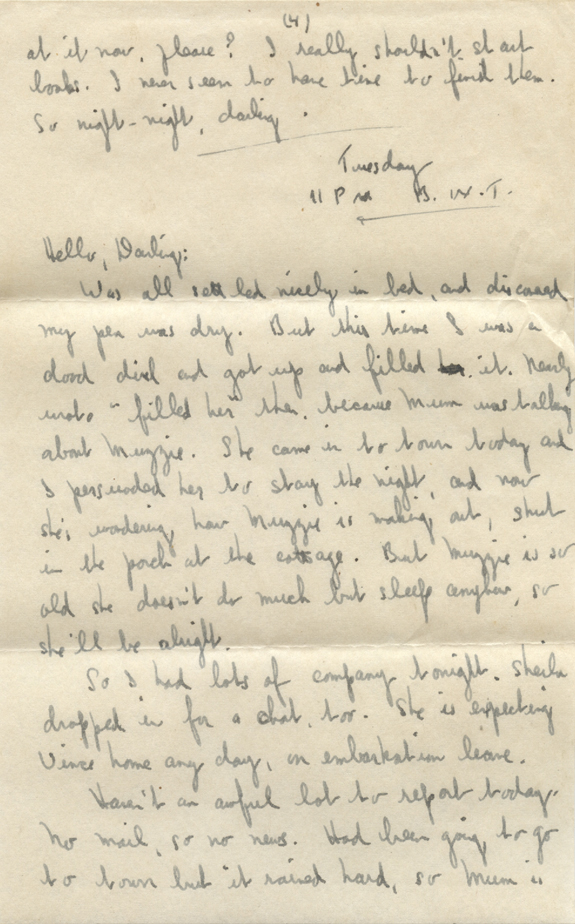 (4)
at it now, please? I really shouldn't start
books. I never seem to have time to finish them.
So night-night, darling.
Tuesday
11 PM B.W.T.
Hello, Darling:
Was all settled nicely in bed, and discovered
my pen was dry. But this time I was a
good girl and got up and filled it. Nearly
wrote "filled her" then, because Mum was talking
about Muggie. She came in to town today and
I persuaded her to stay the night, and now
she's wondering how Muggie is making out, shut
in the porch at the cottage. But Muggie is so
old she doesn't do much but sleep anyhow, so
she'll be alright.
So I had lots of company tonight. Sheila
dropped in for a chat, too. She is expecting
Vince home any day, on embarkation leave.
Haven't an awful lot to report today.
No mail, so no news. Had been going to go
to town but it rained hard, so Mum is